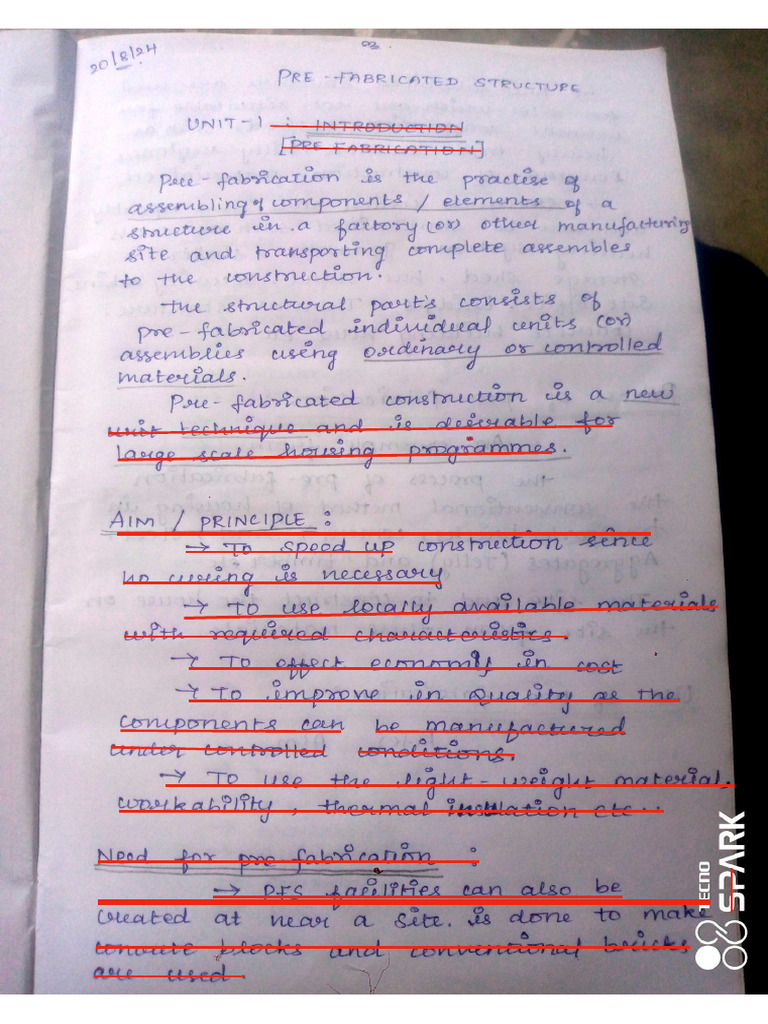 20/8/24
02.
PRE-FABRICATED STRUCTURE
UNIT-1 : INTRODUCTION
[PRE FABRICATION]
Pre-fabrication is the practise of
assembling of components / elements of a
structure in a factory (or) other manufacturing
site and transporting complete assembles
to the construction.
The structural part's consists of
pre-fabricated individual units (or)
assemblies using ordinary or controlled
materials.
Pre-fabricated construction is a new
unit technique and is desirable for
large scale housing programmes.
AIM / PRINCIPLE :
→ To speed up construction since
no curing is necessary
→ To use locally available materials
with required characteristics.
→ To effect economly in cost
→ To improve in Quality as the
components can be manufactured
under controlled conditions.
→ To use the light-weight material,
workability, thermal insulation etc..
Need for pre fabrication :
→ PFS facilities can also be
created at near a site. is done to make
concrete blocks and conventional bricks
are used.
TECNO
SPARK